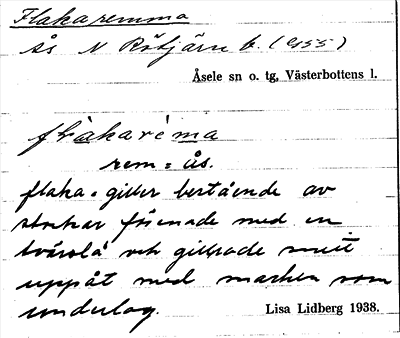 Flakaremma
Ås N Rötjärn b. (955)
Åsele sn o. tg, Västerbottens l.
flàkaréma
rem = ås.
flaka = giller bestående av
stockar förenade med en
tvärslå och gillrade snett
uppåt med marken som
underlag.
Lisa Lidberg 1938.